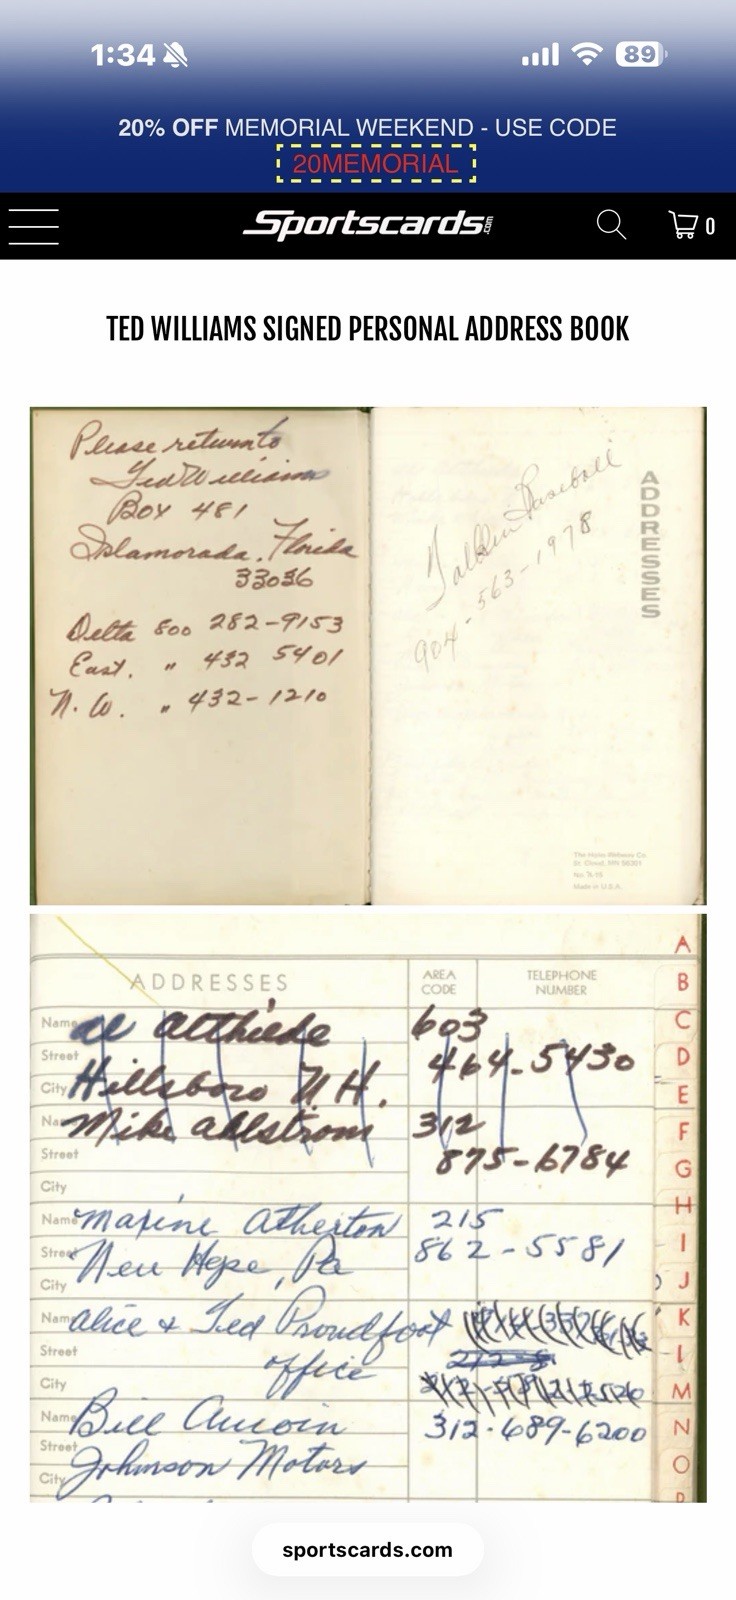 1:34
89
20% OFF MEMORIAL WEEKEND - USE CODE
20MEMORIAL
Sportscards.com
0
TED WILLIAMS SIGNED PERSONAL ADDRESS BOOK
Please return to
Ted Williams
Box 481
Islamorada, Florida
33036
Delta 800 282-9153
East. " 432 5401
N.W. " 432-1210
Baseball
904-563-1978
ADDRESSES
St. Cloud, MN 56301
Made in U.S.A.
ADDRESSES
AREA CODE
TELEPHONE NUMBER
Name Al 603
Street 464-5430
City Hillsboro N H.
Name Mike Ahlstrom 312
Street 875-6784
City
Name Maxine Atherton 215
Street New Hope, Pa 862-5581
City
Name Alice & Ted Proudfoot
Street office
City
Name Bill 312-689-6200
Street Johnson Motors
City
A
B
C
D
E
F
G
H
I
J
K
L
M
N
O
P
sportscards.com